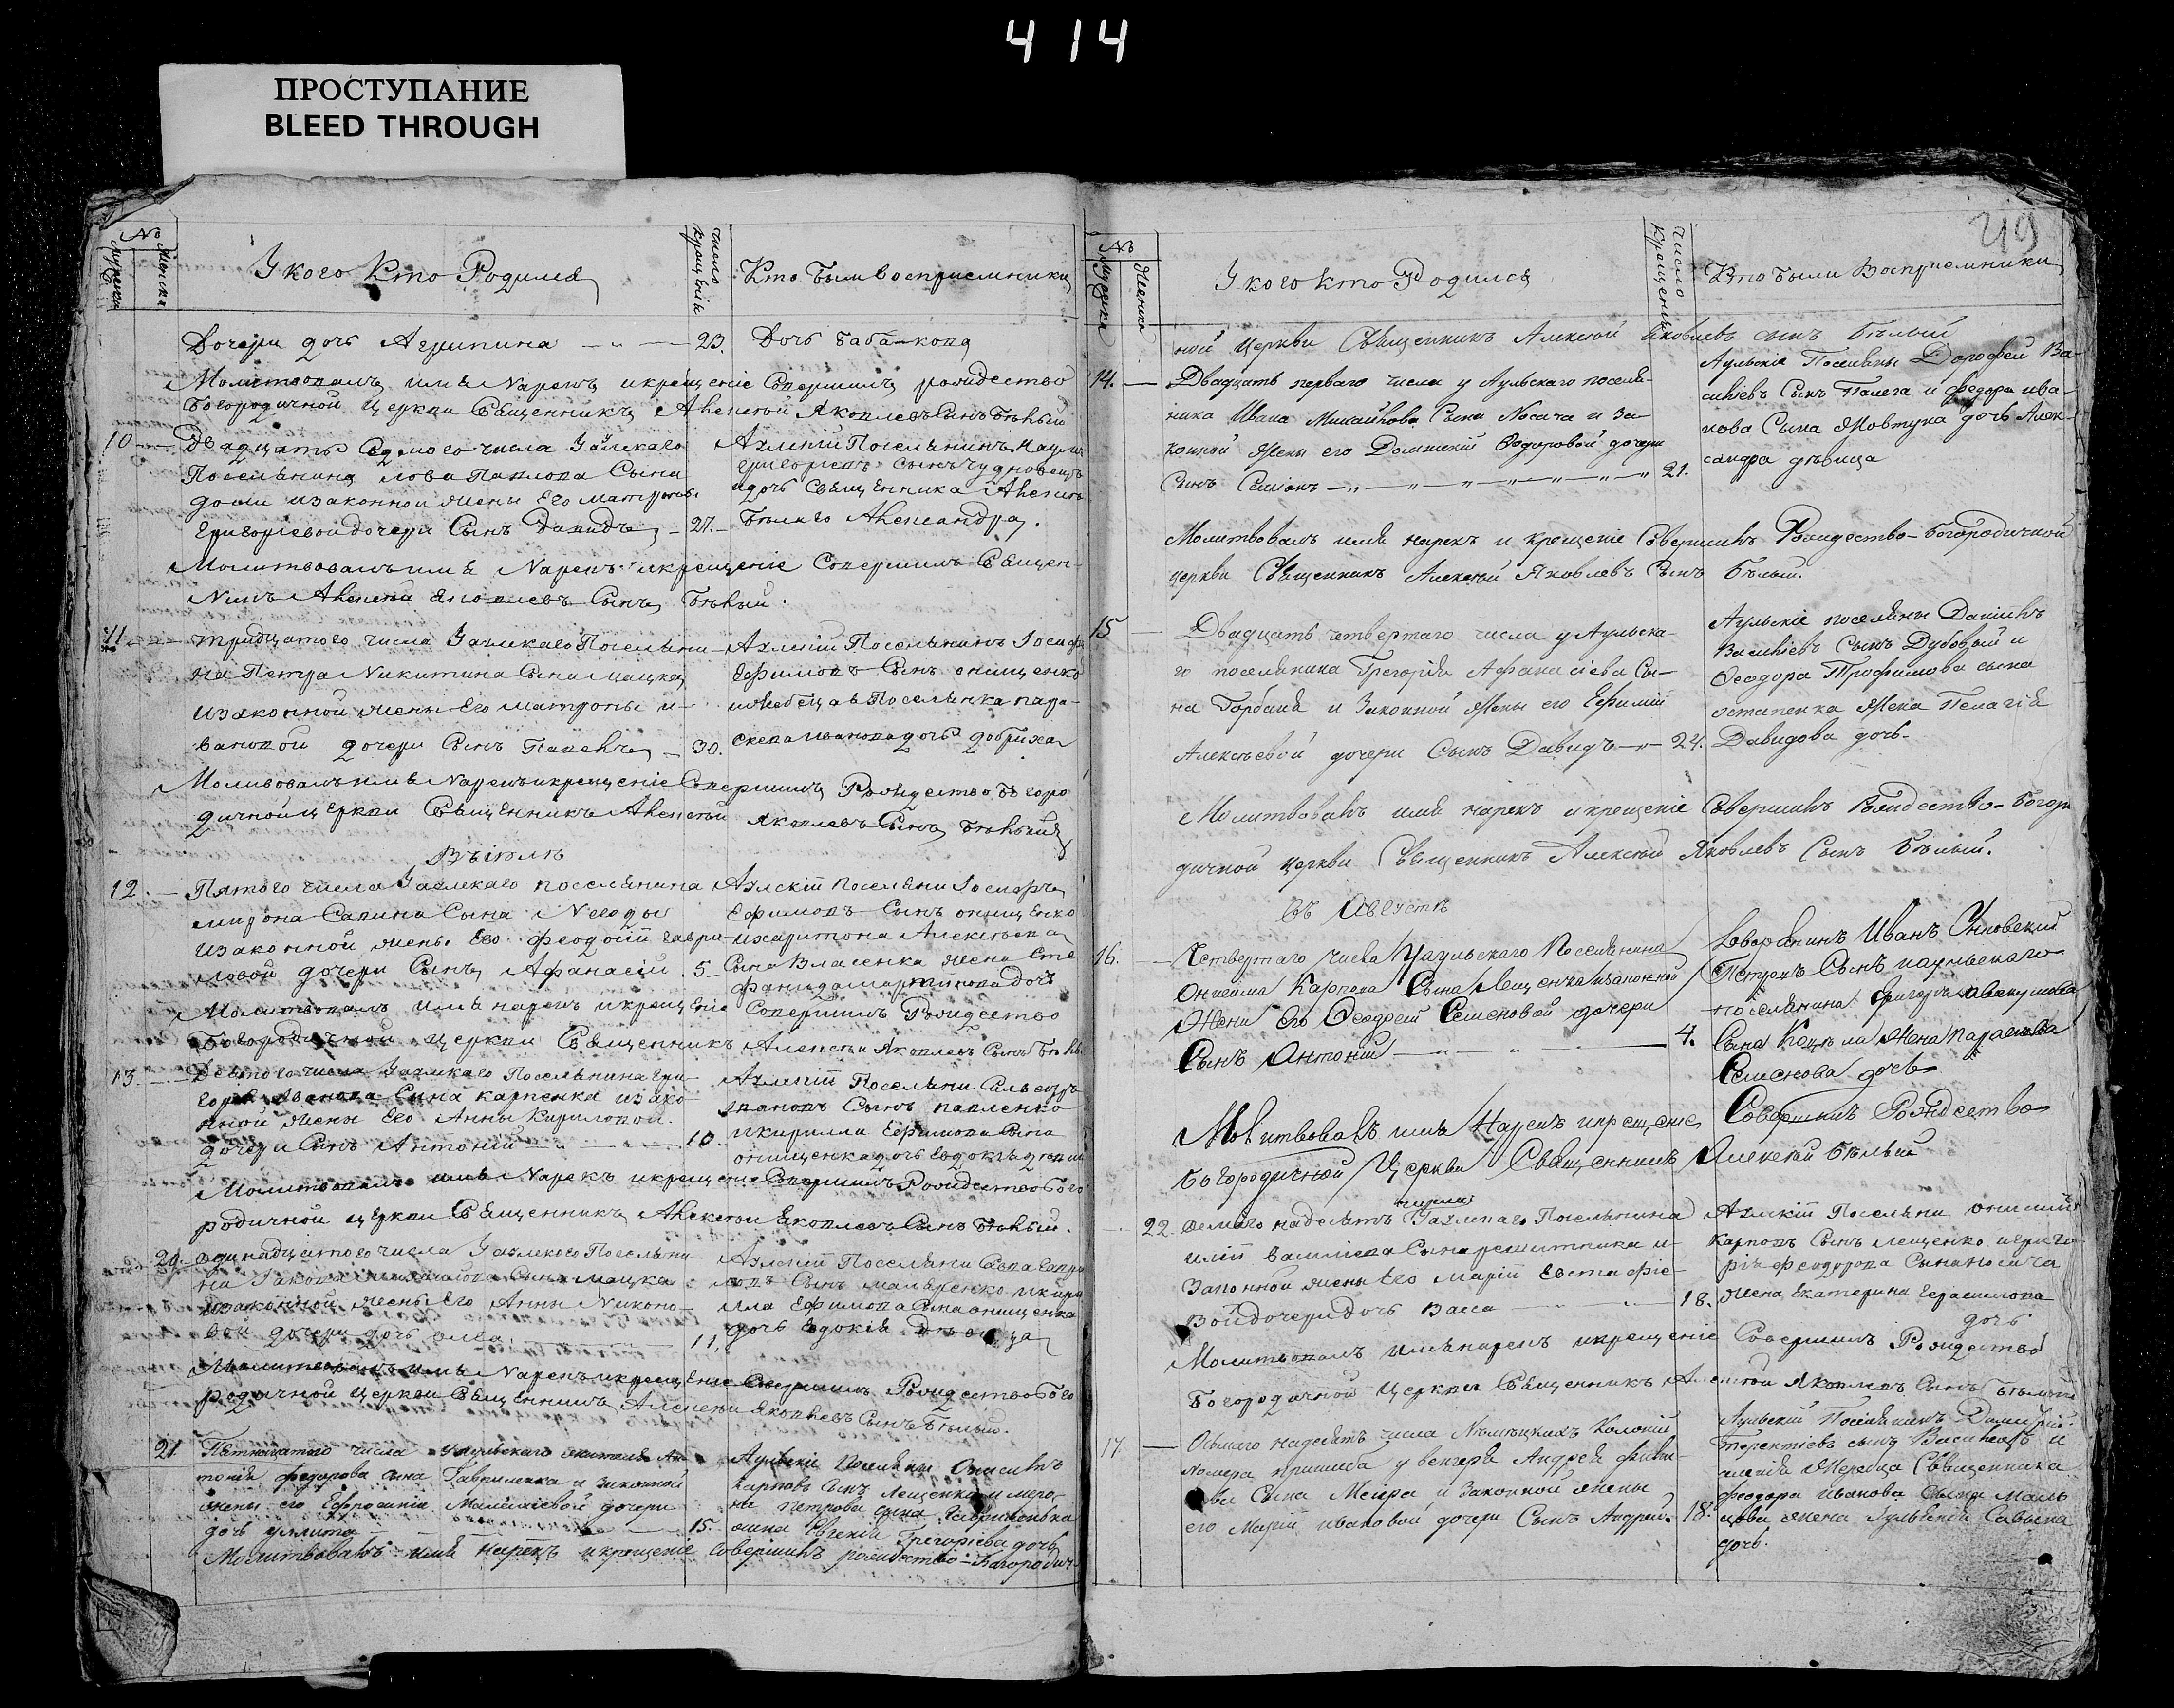 414
ПРОСТУПАНИЕ
BLEED THROUGH
№
мужска
женска
У кого Кто Родился
число крещенія
Кто были восприемники
Дочери дочь Агрипина 23. Дочь баба
Молитвовалъ имя нарекъ и крещеніе совершилъ рождество
Богородичной церкви Священникъ Алексѣй Яковлевъ Сынъ Бѣлый
10 Двадцать седмого числа У Аулскаго
Поселянина Павлова Сына
и законной жены Его Матроны
Григорiевой дочери Сынъ Давидъ 27.
Аулскій Поселянинъ
Григорiевъ сынъ Чудновецъ
и дочь Священника
Бѣлаго Александра.
Молитвовалъ имя Нарекъ и крещеніе Совершилъ Священ-
никъ Алексѣй Яковлевъ Сынъ Бѣлый.
11 тридцатого числа У Аулскаго Поселяни-
на Петра Никитина Сына Мацка
и законной жены Его Матроны и-
вановой дочери Сынъ Павелъ 30.
Аулскій Поселянинъ Іосифъ
Ефимовъ Сынъ Онищенко
Поселянка пара-
скева Иванова дочь
Молитвовалъ имя Нарекъ и крещеніе Совершилъ Рождество Бгоро
дичной церкви Священникъ Алексѣй Яковлевъ Сынъ Бѣлый
Въ іюлѣ
12. Пятого числа У Аулскаго поселянина
Мирона Савина Сына Негоды
и законной жены Его Феодосіи Гаври-
ловой дочери Сынъ Афанасій 5
Аулскіи поселяни Іосифъ
Ефимовъ Сынъ онищенко
и харитона Алексѣева
Сына Власенка жена Сте
фанида Мартинова дочь
Молитвовалъ имя нарекъ и крещеніе Совершилъ Рождество
Богородичной церкви Священникъ Алексѣй Яковлевъ Сынъ Бѣлы
13. числа У Аулскаго Поселянина Гри-
горія Иванова Сына карпенка и зако-
нной жены Его Анны Кириловой
дочери Сынъ Антоній 10.
Аулскіи Поселяни
Ивановъ Сынъ павленко
и кирилла Ефимова Сына
онищенка дочь Евдокія
Молитвовалъ имя Нарекъ и крещеніе Совершилъ Рождество Бого
родичной церкви Священникъ Алексѣй Яковлевъ Сынъ Бѣлый.
20. одинадцятого числа У Аулского Поселяни-
на Якова Михайлова Сына Мацка
и законной жены Его Анны Никоно-
вой дочери дочь олга 11.
Аулскіи Поселяни Савва Гаври
ловъ Сынъ и Кири
лла Ефимова Сына онищенка
дочь Евдокія Дѣвица
Молитвовалъ имя Нарекъ и крещеніе Совершилъ Рождество Бого
родичной церкви Священникъ Алексѣй Яковлевъ Сынъ Бѣлый.
21 Пятнацатого числа у Аульскаго жителя Ан
тонія федорова сына Гавриленка и законной
жены его Ефросиніи дочери
дочь уллита 15.
Аульскіе поселяны Онисимъ
Карповъ Сынъ Лещенко и миро-
на петрова сына Гавриленка
жена Евгенія Григоріева дочь
Молитвовалъ имя нарекъ и крещеніе совершилъ рождество-Багородич
49
№
мужска
женска
У кого кто Родился
число крещенія
Кто были Восприемники
ной церкви Священникъ Алексѣй Яковлевъ сынъ бѣлый
14. Двадцать перваго числа у Аульскаго поселя-
ника Ивана Михайлова Сына Носача и За-
конной жены его Домникіи Федоровой дочери
Сынъ Семіонъ 21.
Аульскіе Поселяны Дорофей Ва-
силіевъ Сынъ Палега и федора ива-
нова Сына Жовтуна дочь Алек-
сандра дѣвица
Молитвовалъ имя нарекъ и крещеніе Совершилъ Рождество-богородичной
церкви Священникъ Алексѣй Яковлевъ Сынъ Бѣлый.
15 Двадцать четвертаго числа у Аульска-
го поселяника Григорія Афанасіева Сы-
на Горбаня и Законной жены его Ефиміи
Алексѣевой дочери Сынъ Давидъ 24.
Аульскіе поселяны Даніилъ
Васильевъ Сынъ Дубовый и
Феодора Трофимова сына
остапенка жена Пелагія
Давидова дочь
Молитвовалъ имя нарекъ и крещеніе Совершилъ Рождество-богоро
дичной церкви Священникъ Алексѣй Яковлевъ Сынъ бѣлый.
въ Августѣ
16. Четвертаго числа У Аульскаго Поселянина
Онисима Карпова Сына Лещенка и законной
Жены Его Феодосіи Семеновой дочери
Сынъ Антоній 4.
Дворянинъ Иванъ
Петровъ Сынъ и аульскаго
поселянина Григорія
Сына Жена Параскева
Семенова дочь
Молитвовалъ имя Нарекъ и крещеніе Совершилъ Рождество
богородичной Церкви Священникъ Алексѣй бѣлый
22. осмаго надесять числа У Аулскаго Поселянина
иліи Василіева Сына решитника и
Законной жены Его Маріи Евстафіе-
вой дочери дочь Васса 18.
Аулскіи Поселяни онисимъ
карповъ Сынъ Лещенко и григо
рія феодорова Сына носача
жена Екатерина Герасимова
дочь
Молитвовалъ имя нарекъ и крещеніе Совершилъ Рождество
Богородичной Церкви Священникъ Алексѣй Яковлевъ Сынъ Бѣлый
17 Осьмаго надесять числа Нѣмецкихъ Колоній
у венгера Андрея
Сына Меира и Законной жены
его Маріи ивановой дочери Сынъ Андрей. 18.
Аульскій Поселянинъ Димитрій
Терентіевъ сынъ и
Священника
феодора иванова Сына
жена Саввина
дочь.